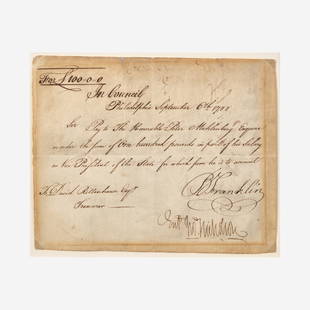 For £100-0-0
In Council
Philadelphia September 6th 1788
Sir Pay to The Honorable Peter Muhlenberg Esquire
or order the sum of One hundred pounds in part of his Salary
as Vice President of the State for which sum he is to account
To David Rittenhouse Esqr
Treasurer
B Franklin
Jno Nicholson